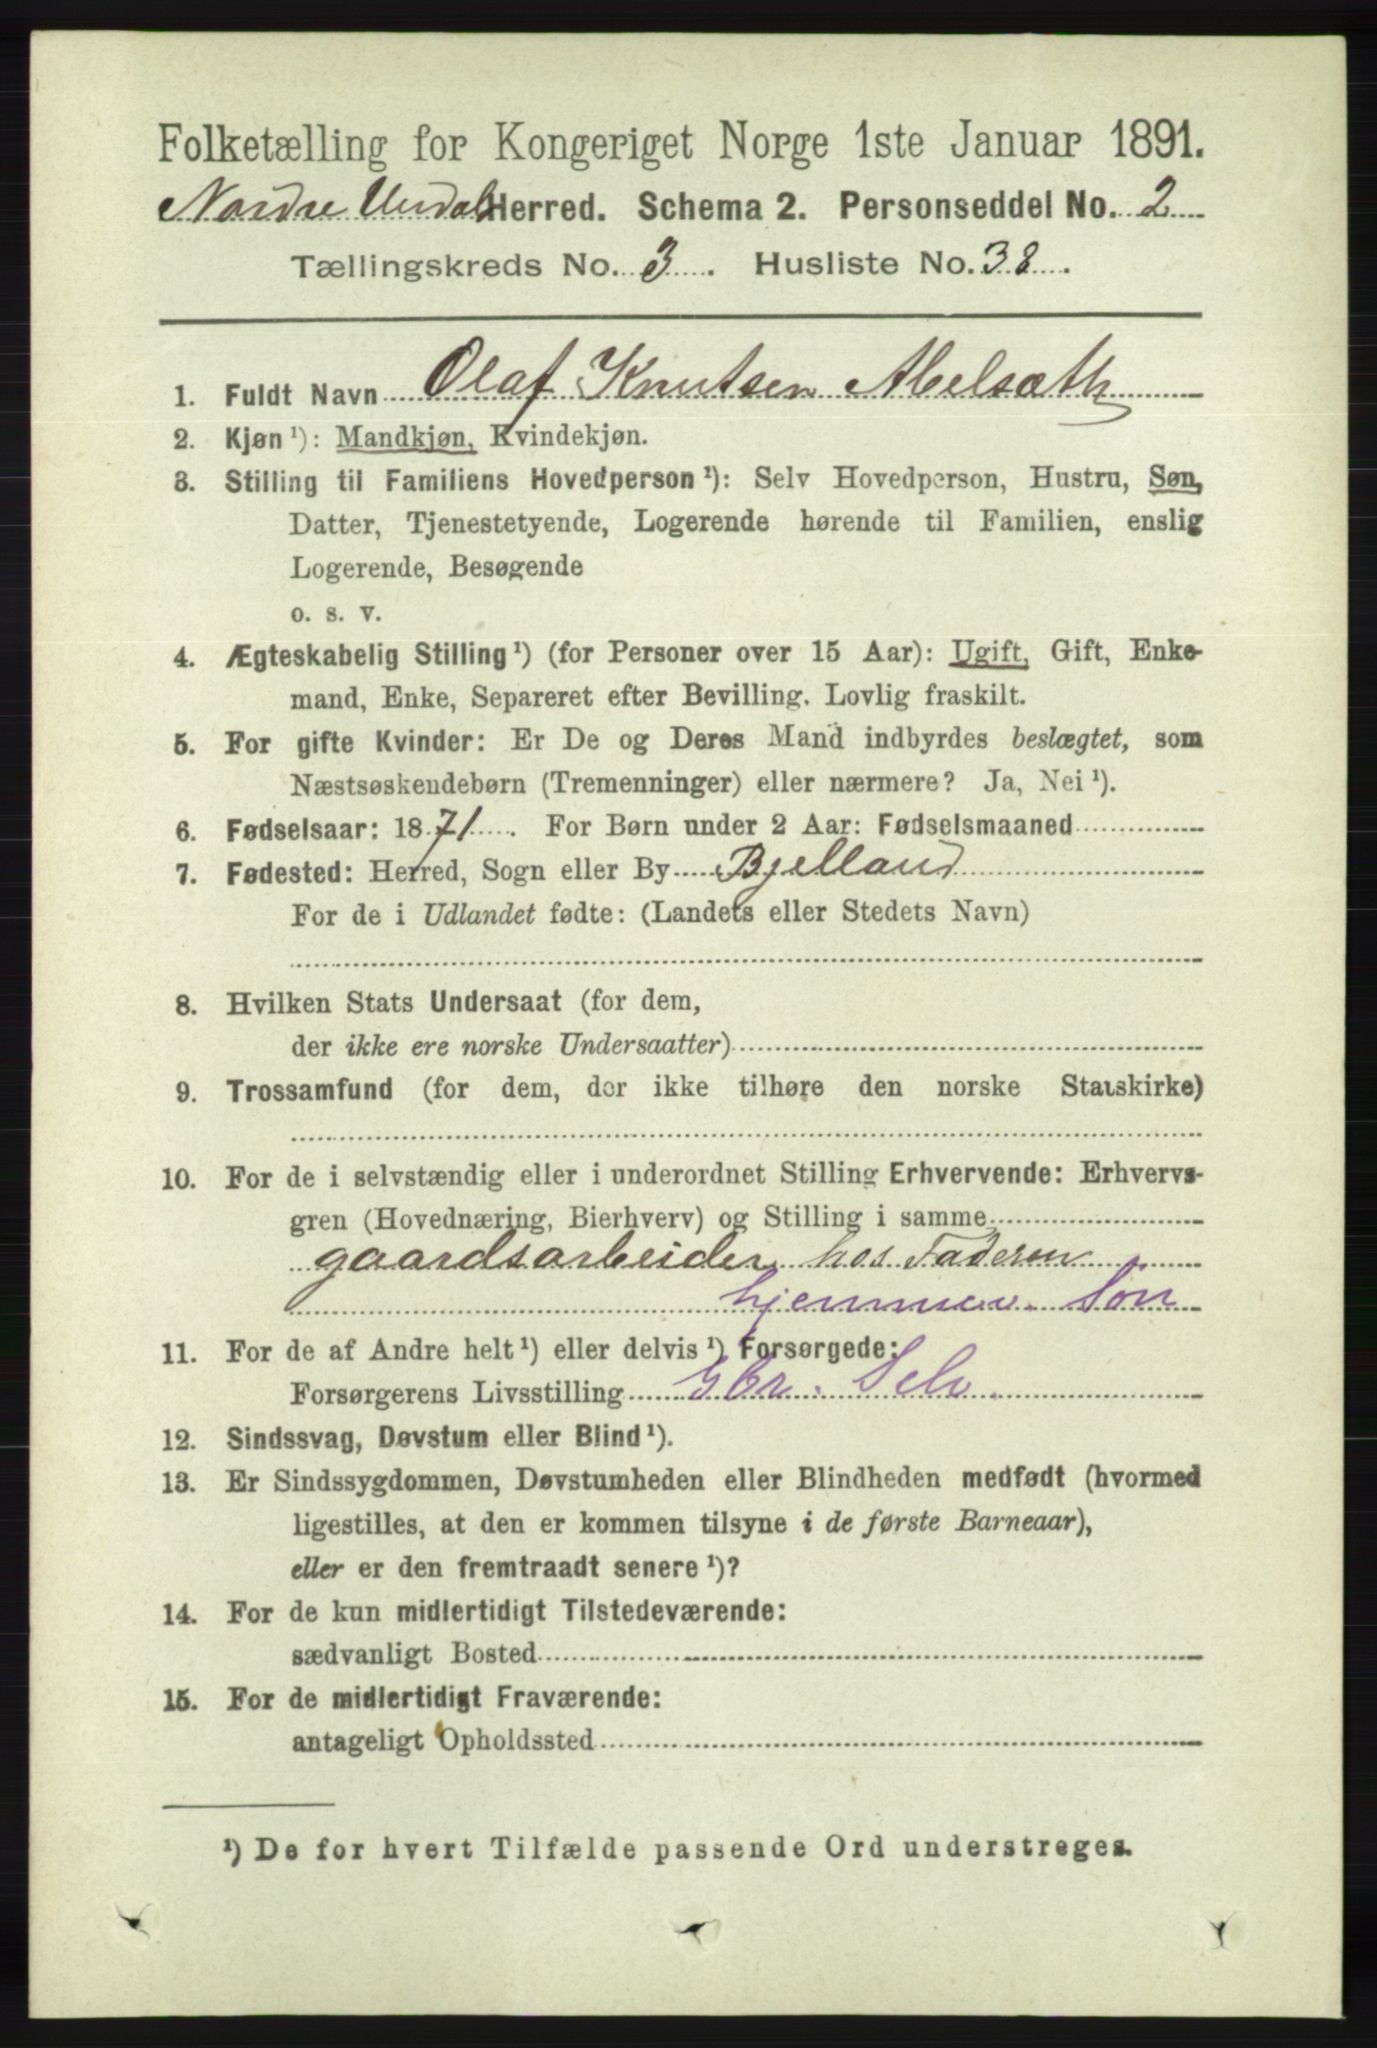 Folketælling for Kongeriget Norge 1ste Januar 1891.
Nordre Undals Herred. Schema 2. Personseddel No. 2
Tællingskreds No. 3. Husliste No. 38.
1. Fuldt Navn Olaf Knutsen Abelsæth
2. Kjøn ¹): Mandkjøn, Kvindekjøn.
3. Stilling til Familiens Hovedperson ¹): Selv Hovedperson, Hustru, Søn,
Datter, Tjenestetyende, Logerende hørende til Familien, enslig
Logerende, Besøgende
o. s. v.
4. Ægteskabelig Stilling ¹) (for Personer over 15 Aar): Ugift, Gift, Enke-
mand, Enke, Separeret efter Bevilling. Lovlig fraskilt.
5. For gifte Kvinder: Er De og Deres Mand indbyrdes beslægtet, som
Næstsøskendebørn (Tremenninger) eller nærmere? Ja, Nei ¹).
6. Fødselsaar: 1871. For Børn under 2 Aar: Fødselsmaaned
7. Fødested: Herred, Sogn eller By Bjelland
For de i Udlandet fødte: (Landets eller Stedets Navn)
8. Hvilken Stats Undersaat (for dem,
der ikke ere norske Undersaatter)
9. Trossamfund (for dem, der ikke tilhøre den norske Statskirke)
10. For de i selvstændig eller i underordnet Stilling Erhvervende: Erhvervs-
gren (Hovednæring, Bierhverv) og Stilling i samme
gaardsarbeider hos Faderen
hjemmev. Søn
11. For de af Andre helt ¹) eller delvis ¹) Forsørgede:
Forsørgerens Livsstilling Gbr. Selv.
12. Sindssvag, Døvstum eller Blind ¹).
13. Er Sindssygdommen, Døvstumheden eller Blindheden medfødt (hvormed
ligestilles, at den er kommen tilsyne i de første Barneaar),
eller er den fremtraadt senere ¹)?
14. For de kun midlertidigt Tilstedeværende:
sædvanligt Bosted
15. For de midlertidigt Fraværende:
antageligt Opholdssted
¹) De for hvert Tilfælde passende Ord understreges.